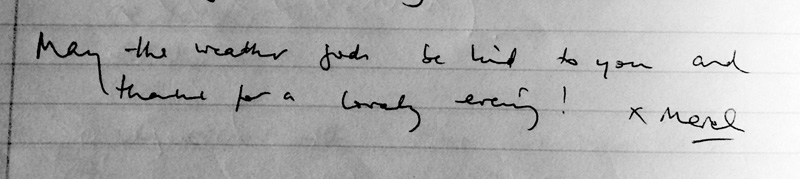 May the weather gods be kind to you and
thanks for a lovely evening! x Merel